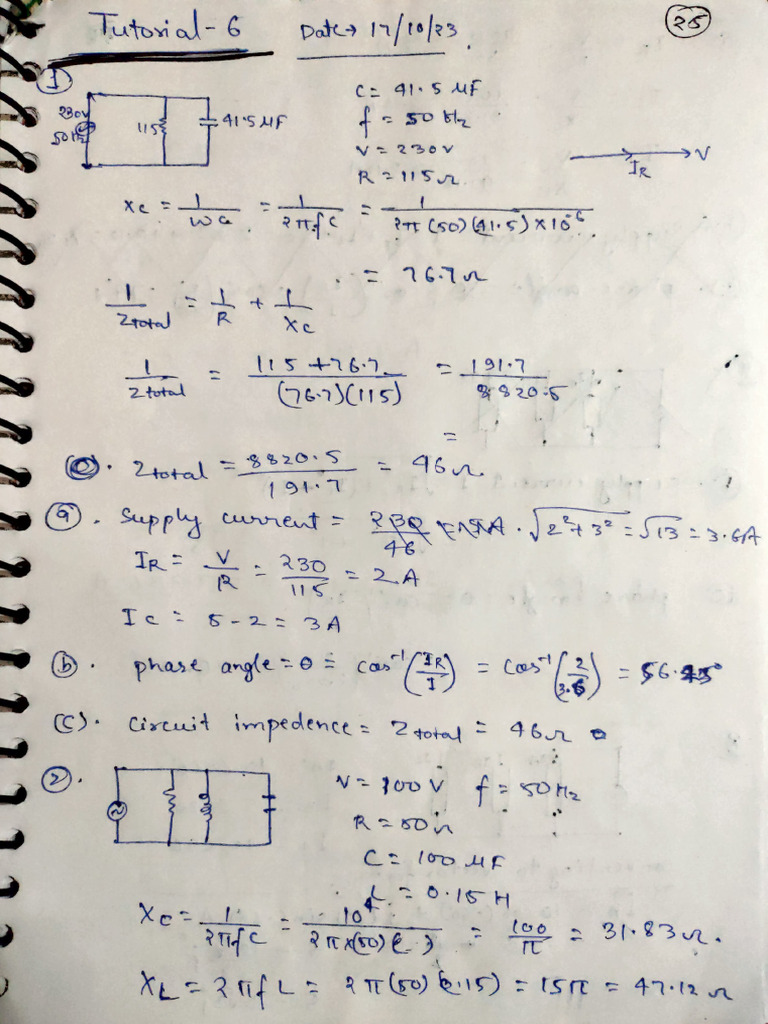 Tutorial - 6 Date → 17/10/23 25
1
230V 50Hz 115 41.5 μF
C = 41.5 μF
f = 50 Hz
V = 230V
R = 115Ω
I_R V
Xc = 1/ωC = 1/2πfC = 1/2π(50)(41.5)×10⁻⁶
= 76.7Ω
1/Ztotal = 1/R + 1/Xc
1/Ztotal = 115+76.7/(76.7)(115) = 191.7/8820.5
=
Ztotal = 8820.5/191.7 = 46Ω.
(a). Supply current = 230/46 . √2²+3² = √13 = 3.6A
I_R = V/R = 230/115 = 2A
Ic = 5-2 = 3A
(b). phase angle = θ = cos⁻¹(I_R/I) = cos⁻¹(2/3.6) = 56.25°
(C). circuit impedence = Ztotal = 46Ω
2.
V = 100V f = 50Hz
R = 50Ω
C = 100 μF
L = 0.15H
Xc = 1/2πfC = 10⁴/2π×(50) = 100/π = 31.83Ω.
X_L = 2πfL = 2π(50)(0.15) = 15π = 47.12Ω